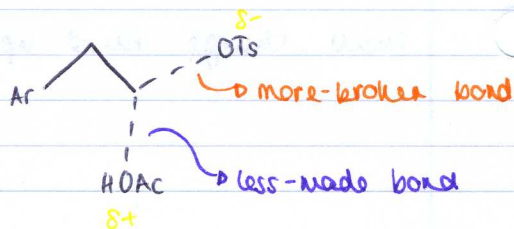 δ-
OTs
Ar
more-broken bond
HOAc
less-made bond
δ+